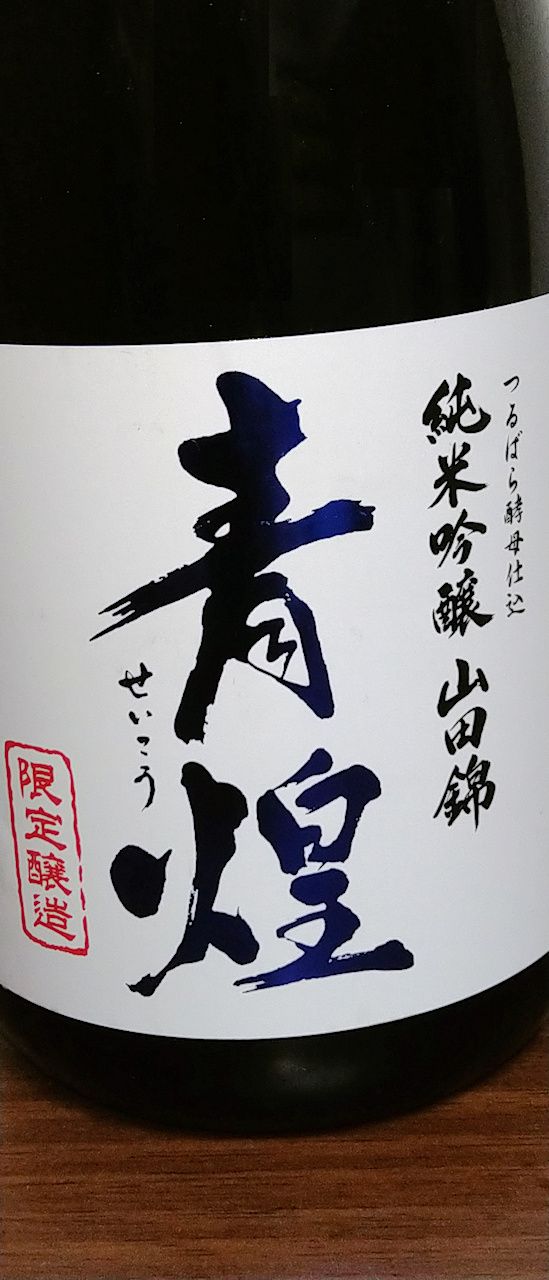 つるばら酵母仕込
純米吟醸 山田錦
青煌
せいこう
限定醸造